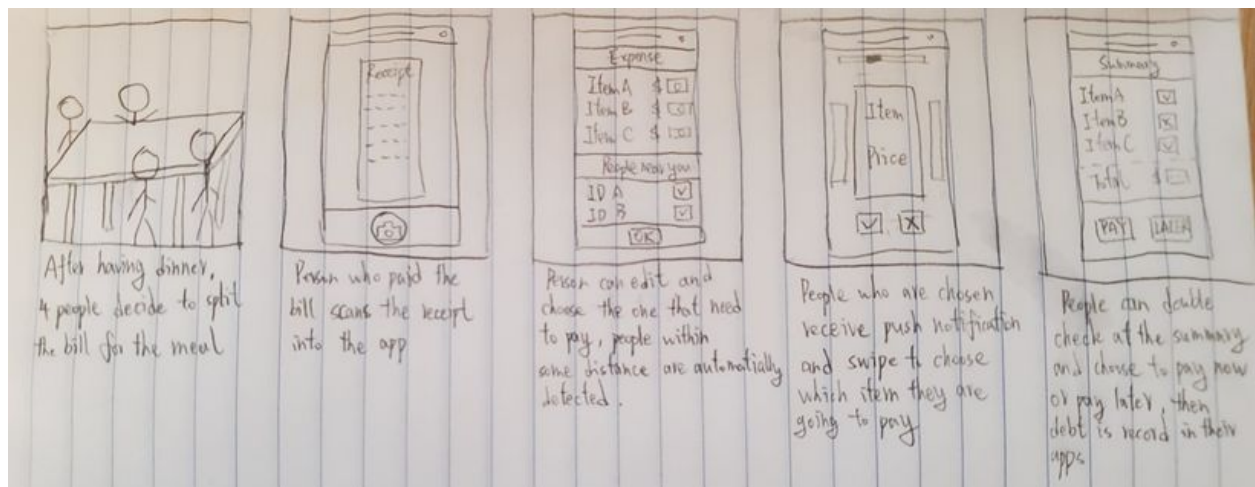 After having dinner,
4 people decide to split
the bill for the meal
Receipt
Person who paid the
bill scans the receipt
into the app
Expense
Item A $ 0
Item B $ 0
Item C $
People near you
ID A
ID B
OK
Person can edit and
choose the one that need
to pay, people within
some distance are automatially
detected.
Item
Price
People who are chosen
receive push notification
and swipe to choose
which item they are
going to pay
Summary
Item A
Item B
Item C
Total $
PAY LATER
People can double
check at the summary
and choose to pay now
or pay later, then
debt is record in their
apps